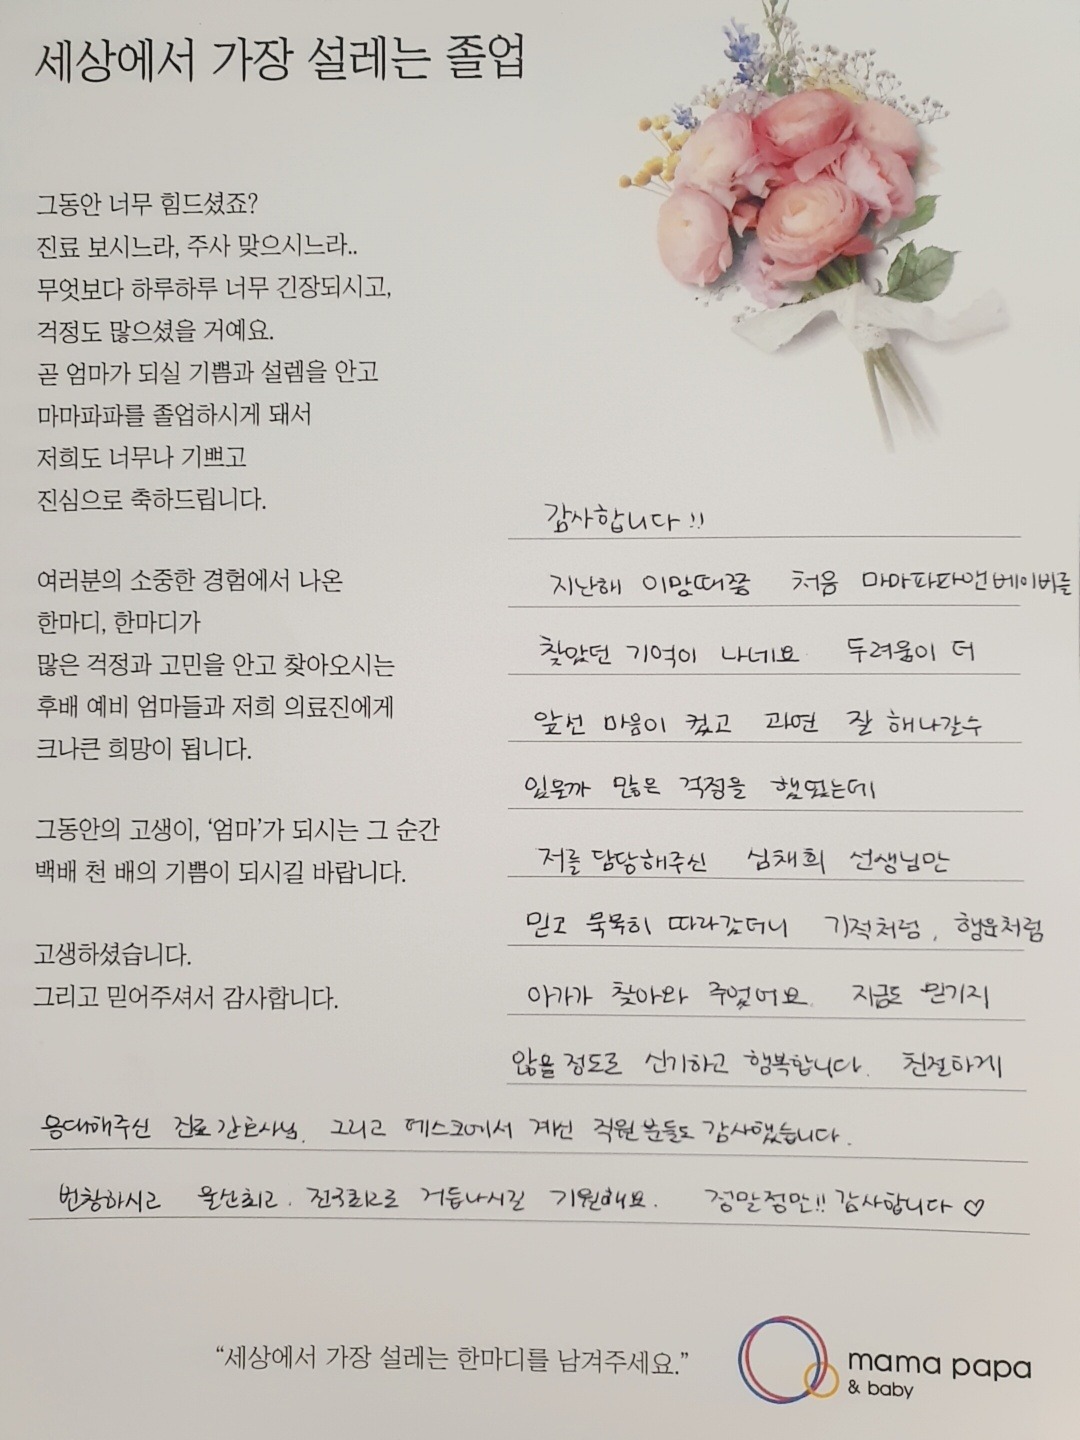 세상에서 가장 설레는 졸업
그동안 너무 힘드셨죠?
진료 보시느라, 주사 맞으시느라..
무엇보다 하루하루 너무 긴장되시고,
걱정도 많으셨을 거예요.
곧 엄마가 되실 기쁨과 설렘을 안고
마마파파를 졸업하시게 돼서
저희도 너무나 기쁘고
진심으로 축하드립니다.
여러분의 소중한 경험에서 나온
한마디, 한마디가
많은 걱정과 고민을 안고 찾아오시는
후배 예비 엄마들과 저희 의료진에게
크나큰 희망이 됩니다.
그동안의 고생이, ‘엄마’가 되시는 그 순간
백배 천 배의 기쁨이 되시길 바랍니다.
고생하셨습니다.
그리고 믿어주셔서 감사합니다.
감사합니다!!
지난해 이맘때쯤 처음 마마파파앤베이비를
찾았던 기억이 나네요 두려움이 더
앞선 마음이 컸고 과연 잘 해나갈수
있을까 많은 걱정을 했었는데
저를 담당해주신 심채희 선생님만
믿고 묵묵히 따라갔더니 기적처럼, 행운처럼
아가가 찾아와 주었어요. 지금도 믿기지
않을 정도로 신기하고 행복합니다. 친절하게
응대해주신 진료간호사님, 그리고 데스크에서 계신 직원분들도 감사했습니다.
번창하시고 울산최고, 전국최고로 거듭나시길 기원해요. 정말정만!! 감사합니다 ♡
“세상에서 가장 설레는 한마디를 남겨주세요.”
mama papa
& baby